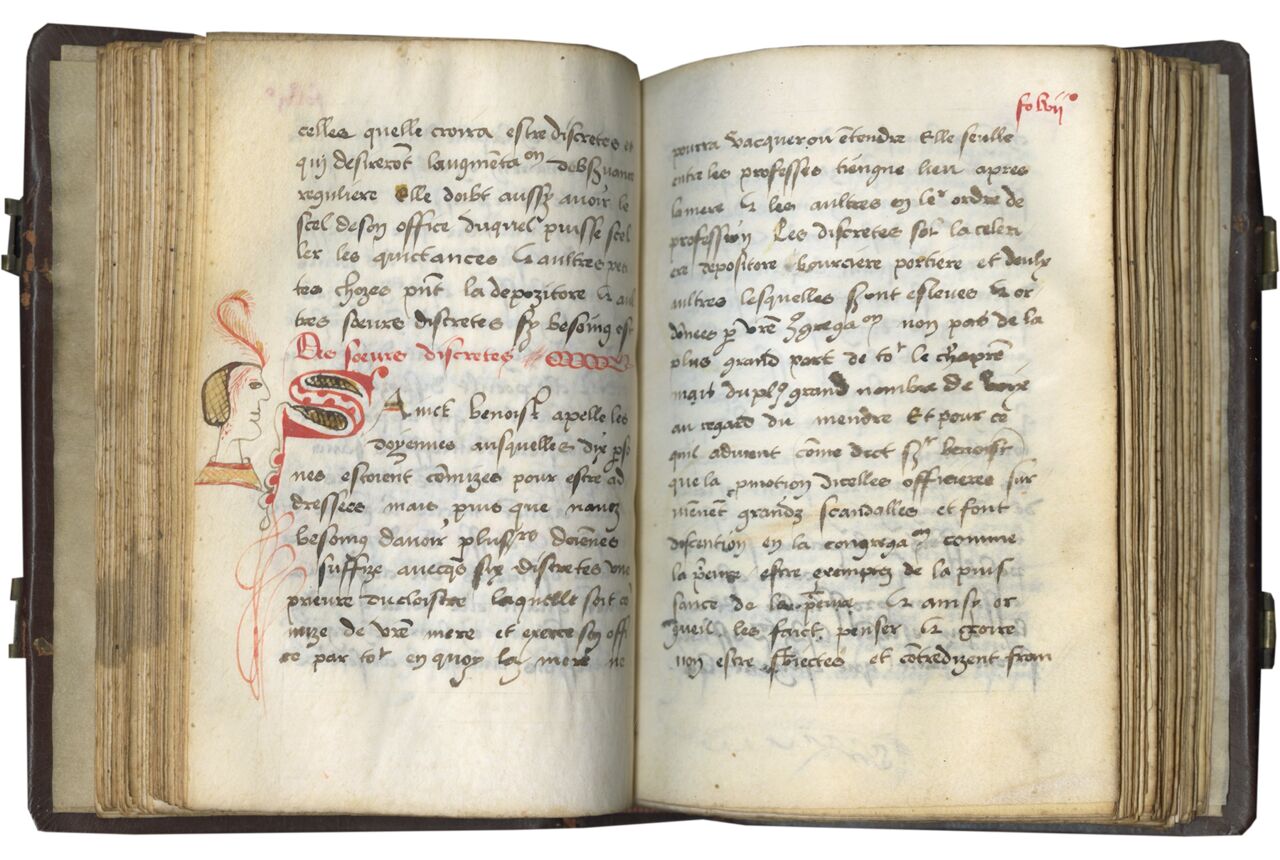 celles quelle croira estre discretes et
qui desirerōt laugmentaon dobsuance
reguliere Elle doibt aussy auoir le
scel deson office duquel puisse scel
ler les quictances & aultres peti
tes chozes pnt la depozitore & aul
tres sœurs discretes sy besoing est
Des sœurs discretes
SAinck benoist apelle les
doyennes ausquelles dix pso
nes estoient cōmizes pour estre ad
dressees mais puis que nauez
besoing dauoir plusrs doiēnes
suffize auecqs six discretes vne
prieure ducloistre laquelle soit cō
mize de vrē mere et exerce son offi
ce par tot en quoy la mere ne
fo lxvii
pourra vacquer ou ētendre Elle seulle
entre les professes tiengne lieu apres
lamere & les aultres en ler ordre de
profession Les discretes sōt la celeri
ere depositore bourciere portiere et deulx
aultres lesquelles sont esleues & or
dōnees p vrē ɔgregaon non pas de la
plus grand part de tot le chaprē
mais du plus grand nombre de voix
au regard du mendre Et pour ce
quil aduient cōme dict st benoist
que la pmotion dicelles officieres sur
uienēt grandz scandalles et font
discention en la congregaon comme
la peure estre exemptez de la puis
sance de la peure & ainsy or
gueil les faict penser & gloire
non estre sbiectes et cōtredizent fran